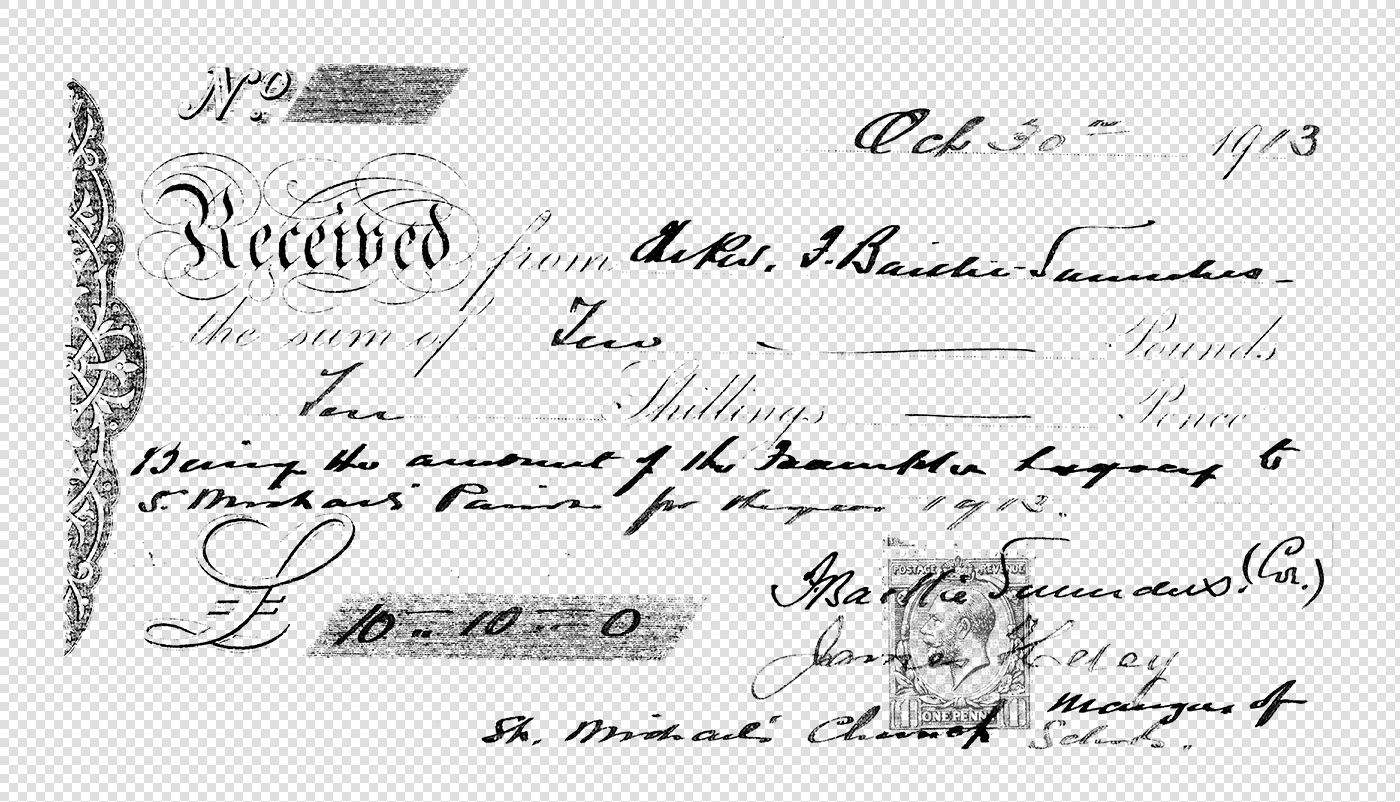 No
Oct 30th 1913
Received from the Rev. F. Baillie-Saunders -
the sum of Ten Pounds
Ten Shillings Pence
Being the amount of the Legacy to
S. Michael's Parish for the year 1913.
£ 10 .. 10 .. 0
POSTAGE REVENUE
F Baillie Saunders. (Cor.)
James
1 ONE PENNY 1
Manager of
St. Michael's Church Schools ..